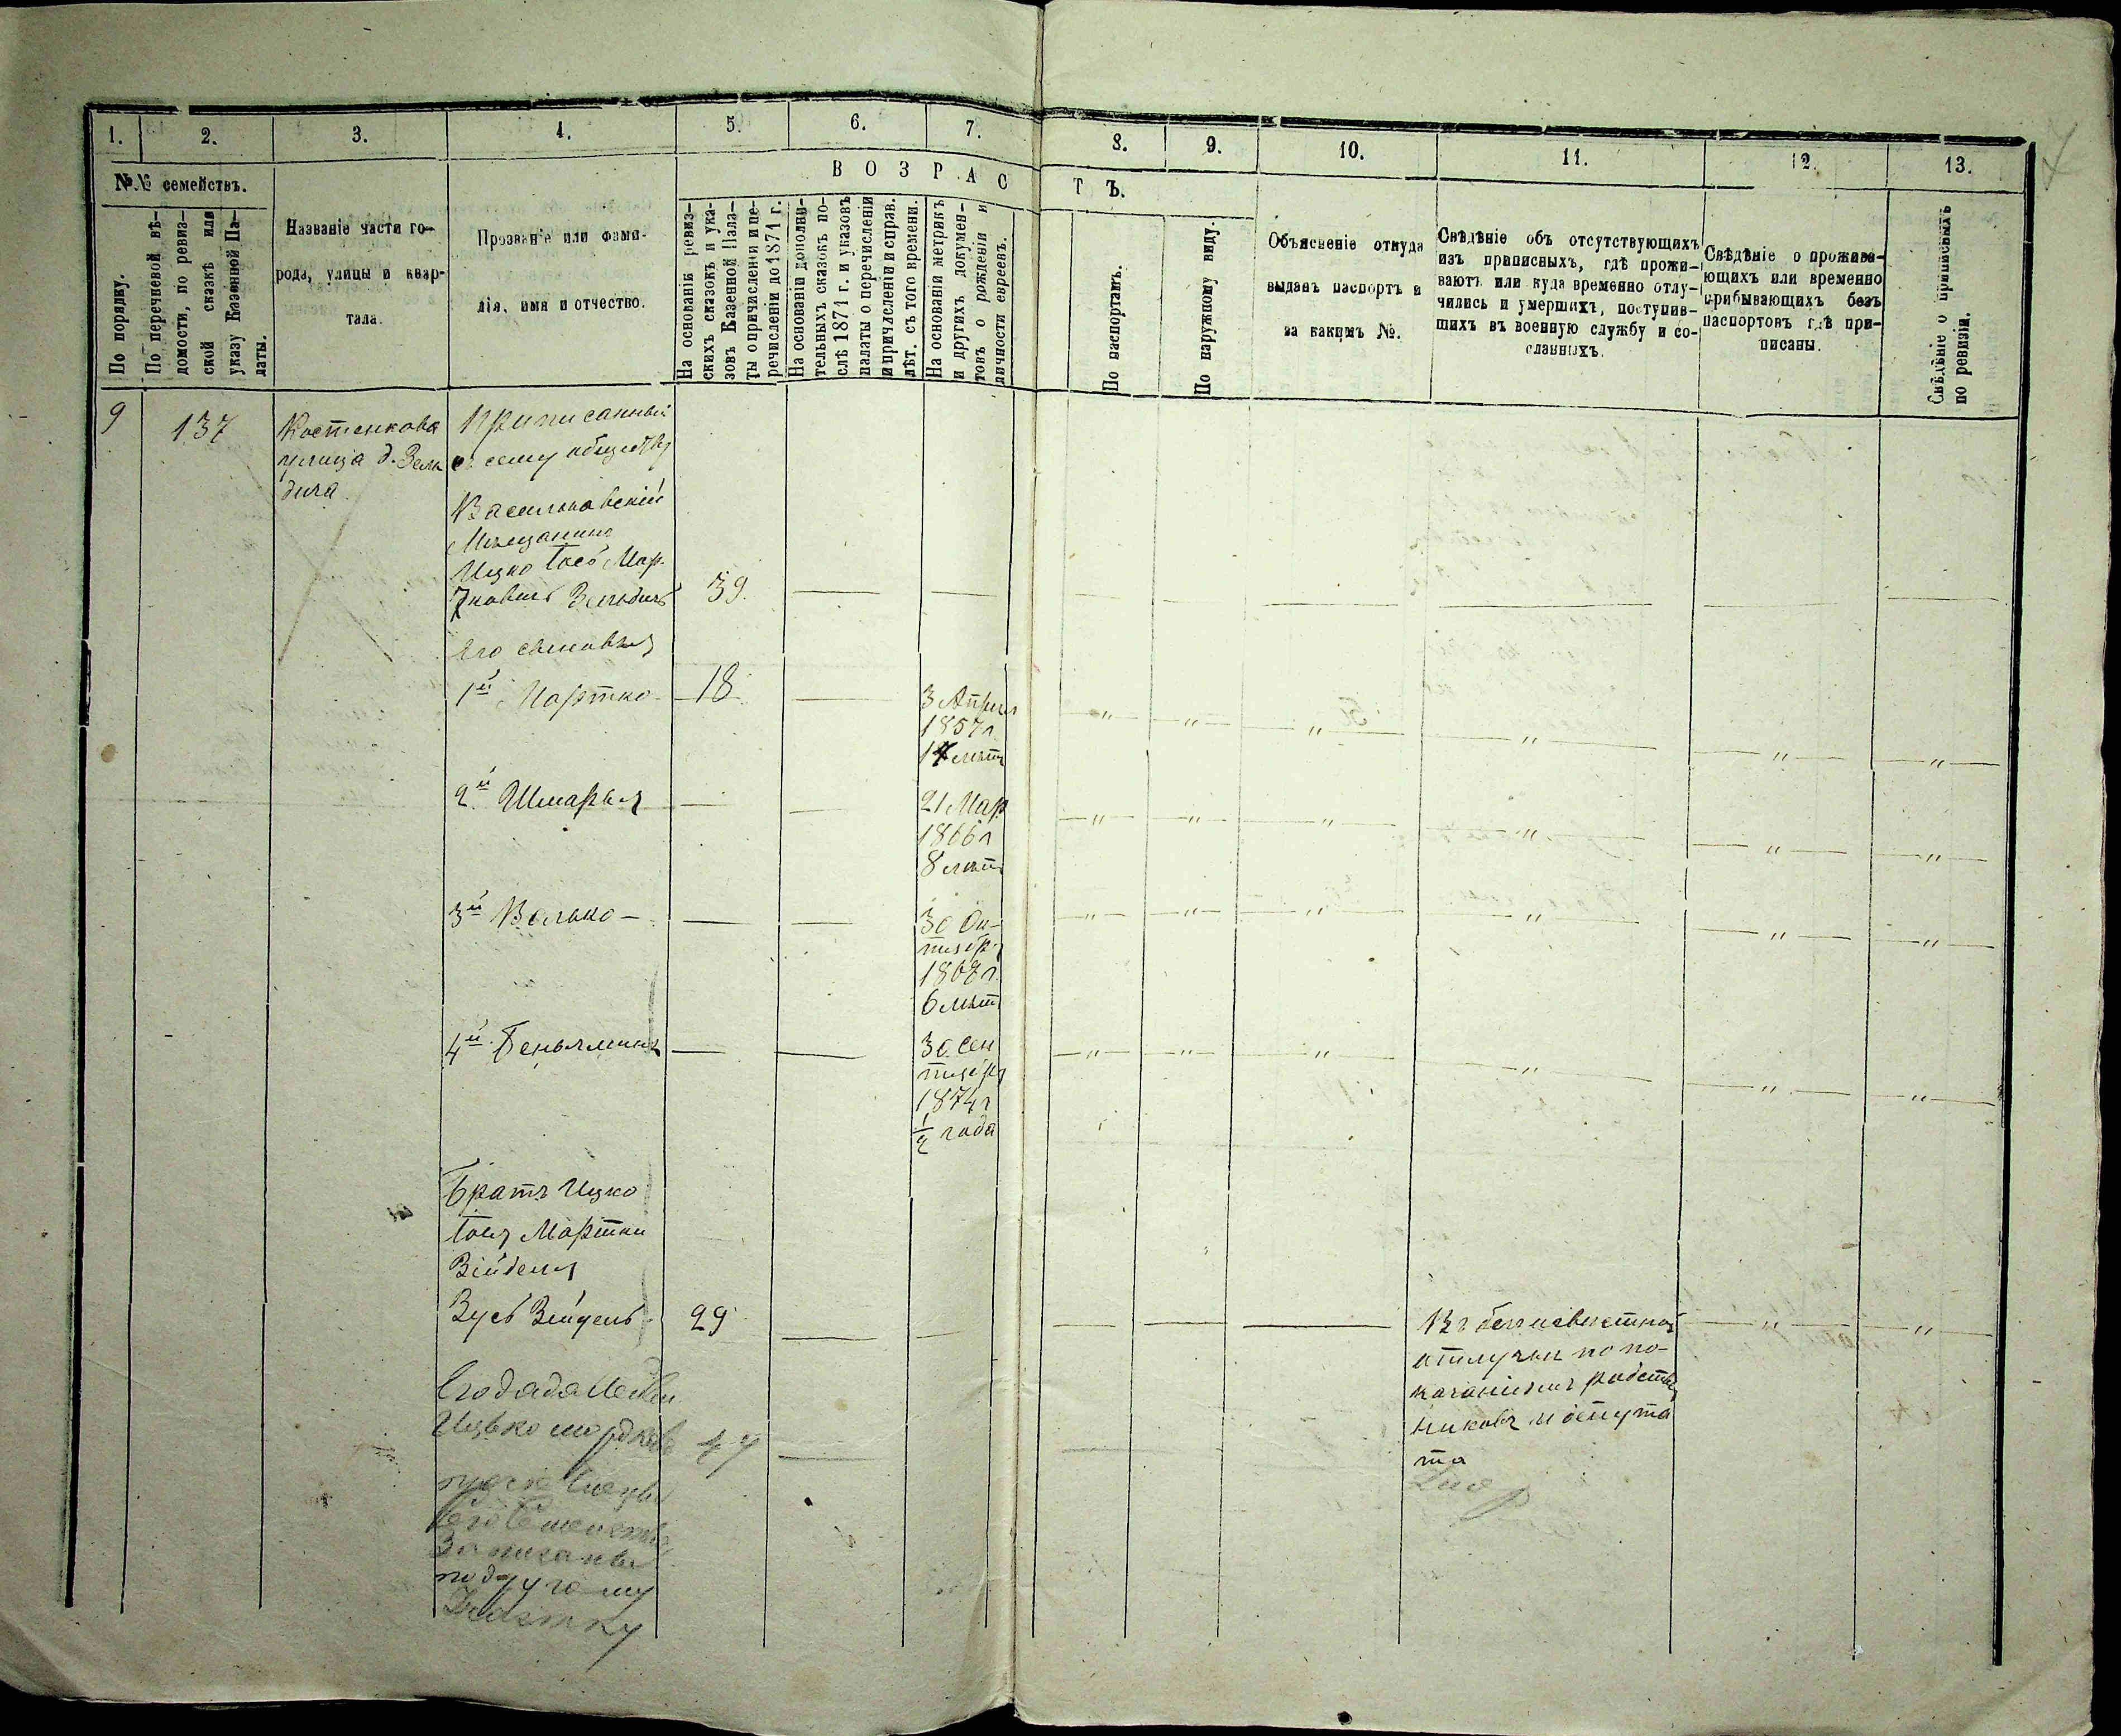 7
1.
2.
3.
4.
5.
6.
7.
8.
9.
10.
11.
12.
13.
№№ семействъ.
В О З Р А С Т Ъ.
По порядку.
По перечневой вѣ-
домости, по ревиз-
ской сказкѣ или
указу Казенной Па-
латы.
Названіе части го-
рода, улицы и квар-
тала.
Прозваніе или фами-
лія, имя и отчество.
На основаніи ревиз-
скихъ сказокъ и ука-
зовъ Казенной Пала-
ты о причисленіи и пе-
речисленіи до 1871 г.
На основаніи дополни-
тельныхъ сказокъ по-
слѣ 1871 г. и указовъ
палаты о перечисленіи
и причисленіи и справ.
лѣт. съ того времени.
На основаніи метрикъ
и другихъ докумен-
товъ о рожденіи и
личности евреевъ.
По паспортамъ.
По наружному виду.
Объясненіе откуда
выданъ паспортъ и
за какимъ №.
Свѣдѣніе объ отсутствующихъ
изъ приписныхъ, гдѣ прожи-
ваютъ или куда временно отлу-
чились и умершихъ, поступив-
шихъ въ военную службу и со-
сланныхъ.
Свѣдѣніе о прожива-
ющихъ или временно
прибывающихъ безъ
паспортовъ гдѣ при-
писаны.
Свѣдѣніе о приписныхъ
по ревизіи.
9
137
Костенкова
улица д.
Приписанный
къ сему обществу
Васильковскій
Мѣщанинъ
Ицко Мор.
39.
Его сыновья
1й Мортко 18 3 Апреля
1857 г
2й Шмарья 21 Мар
1866 г
8 лѣтъ
3й Волько 30 Ок-
тября
1868 г.
6 лѣтъ
4й Беньяминъ 30 Сен
тября
1874 г
1/2 года
Братъ Ицко
Мортки
Зейделя
Зусь Зейдель 29
Въ безизвестной
отлучки по по-
казаніямъ родствен
никовъ и депута
та
Его дядя
Ицько мордков 47
записаны
по другому
участку